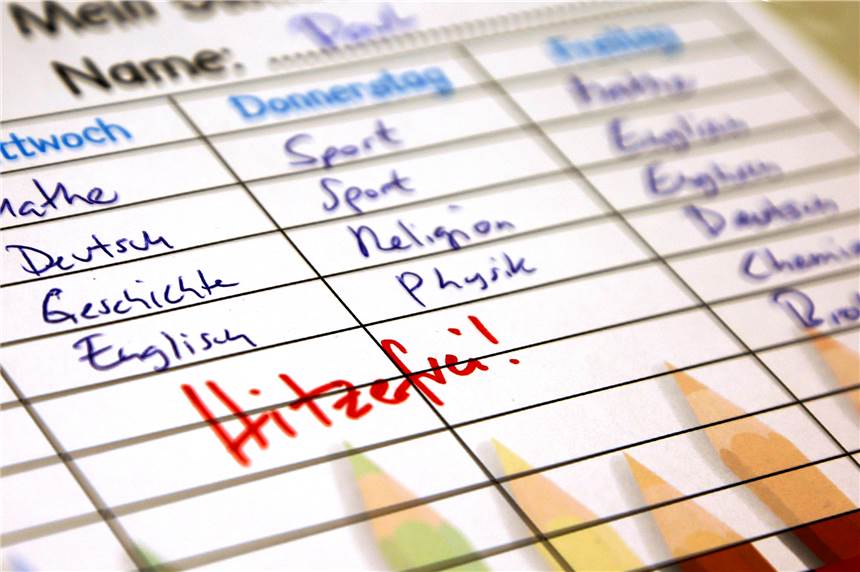 Mein
Name: Paul
ttwoch Donnerstag Freitag
Mathe Sport Mathe
Deutsch Sport Englisch
Geschichte Religion Englisch
Englisch Physik Deutsch
Chemie
Hitzefrei!